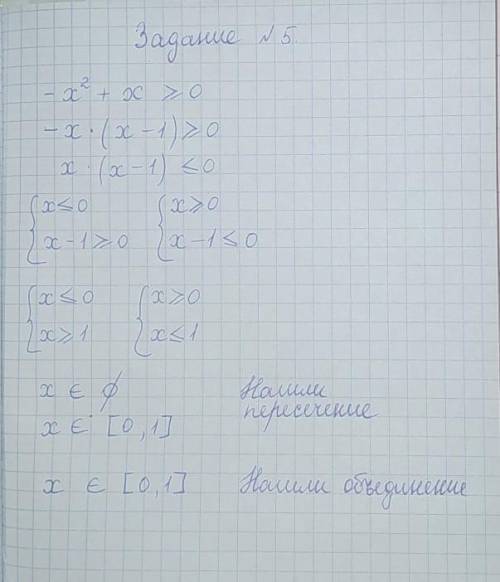 Задание №5.
-x² + x ≥ 0
-x · (x - 1) ≥ 0
x · (x - 1) ≤ 0
{x ≤ 0 {x ≥ 0
{x - 1 ≥ 0 {x - 1 ≤ 0
{x ≤ 0 {x ≥ 0
{x ≥ 1 {x ≤ 1
x ∈ ∅ Нашли
пересечение
x ∈ [0,1]
x ∈ [0,1] Нашли объединение